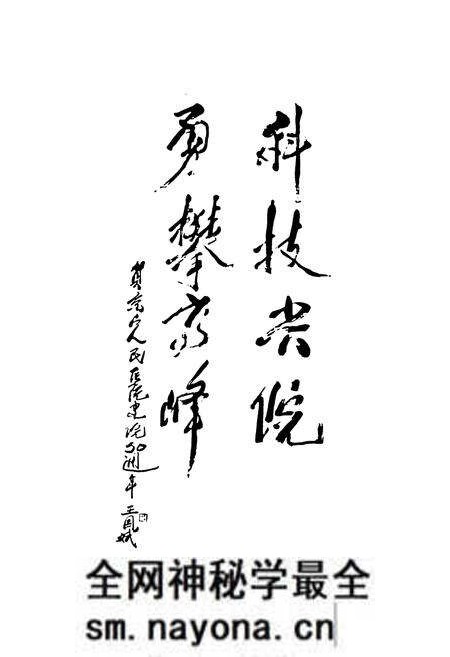 科技兴院
勇攀高峰
賀 人民医院建院50週年 王凤
全网神秘学最全
sm.nayona.cn